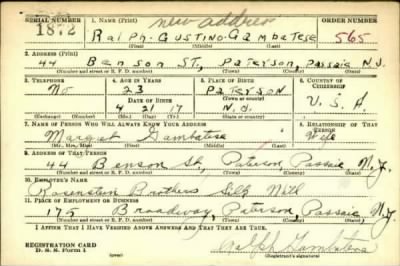 SERIAL NUMBER 1. NAME (Print) new address ORDER NUMBER
1872 Ralph. GUSTINO. GAMBATESE 565
(First) (Middle) (Last)
2. ADDRESS (Print)
44 Benson ST, PATERSON, Passaic N.J.
(Number and street or R. F. D. number) (Town) (County) (State)
3. TELEPHONE 4. AGE IN YEARS 5. PLACE OF BIRTH 6. COUNTRY OF CITIZENSHIP
No 23 PATERSON
DATE OF BIRTH (Town or county) U.S.A.
4 21 17 N.J.
(Exchange) (Number) (Mo.) (Day) (Yr.) (State or country)
7. NAME OF PERSON WHO WILL ALWAYS KNOW YOUR ADDRESS 8. RELATIONSHIP OF THAT PERSON
Margaret Gambatese Wife
(Mr., Mrs., Miss) (First) (Middle) (Last)
9. ADDRESS OF THAT PERSON
44 Benson St, Paterson, Passaic N.J.
(Number and street or R. F. D. number) (Town) (County) (State)
10. EMPLOYER'S NAME
Rosenstein Brothers Silk Mill
11. PLACE OF EMPLOYMENT OR BUSINESS
175 Broadway, Paterson, Passaic, N.J.
(Number and street or R. F. D. number) (Town) (County) (State)
I AFFIRM THAT I HAVE VERIFIED ABOVE ANSWERS AND THAT THEY ARE TRUE.
REGISTRATION CARD
D. S. S. Form 1 (over) Ralph Gambatese
(Registrant's signature)